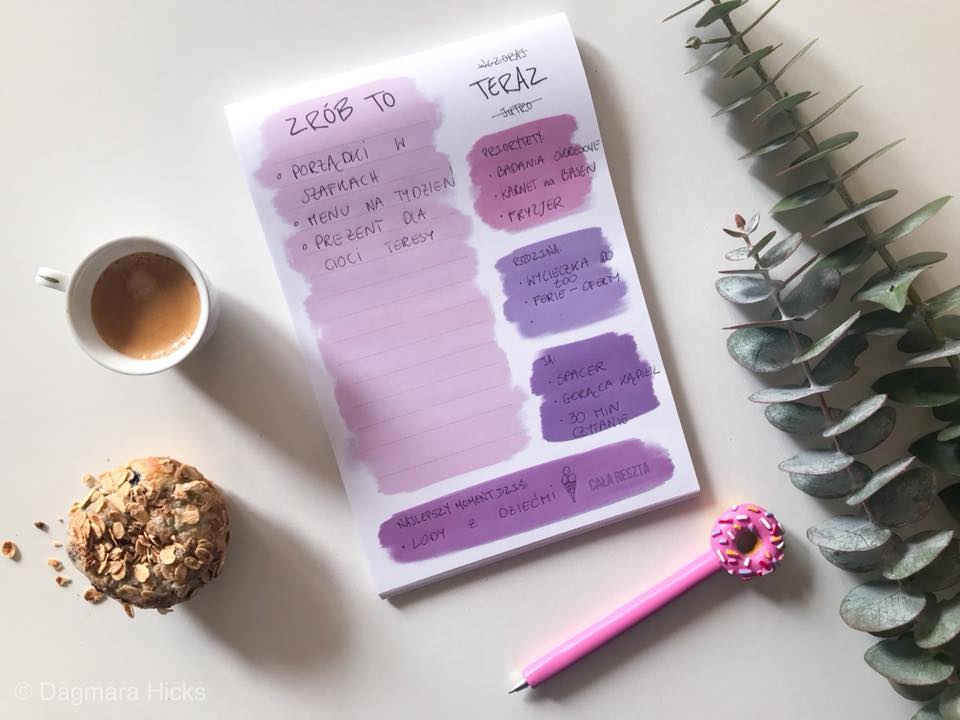 ZRÓB TO
◦ PORZĄDKI W
SZAFKACH
◦ MENU NA TYDZIEŃ
◦ PREZENT DLA
CIOCI TERESY
WCZORAJ
TERAZ
JUTRO
PRIORYTETY:
· BADANIA OKRESOWE
· KARNET na BASEN
· FRYZJER
RODZINA:
· WYCIECZKA DO
ZOO
· FERIE - OFERTY
·
JA:
· SPACER
· GORĄCA KĄPIEL
· 30 MIN
CZYTANIE
NAJLEPSZY MOMENT DZIŚ:
· LODY Z DZIEĆMI
CAŁA RESZTA
© Dagmara Hicks